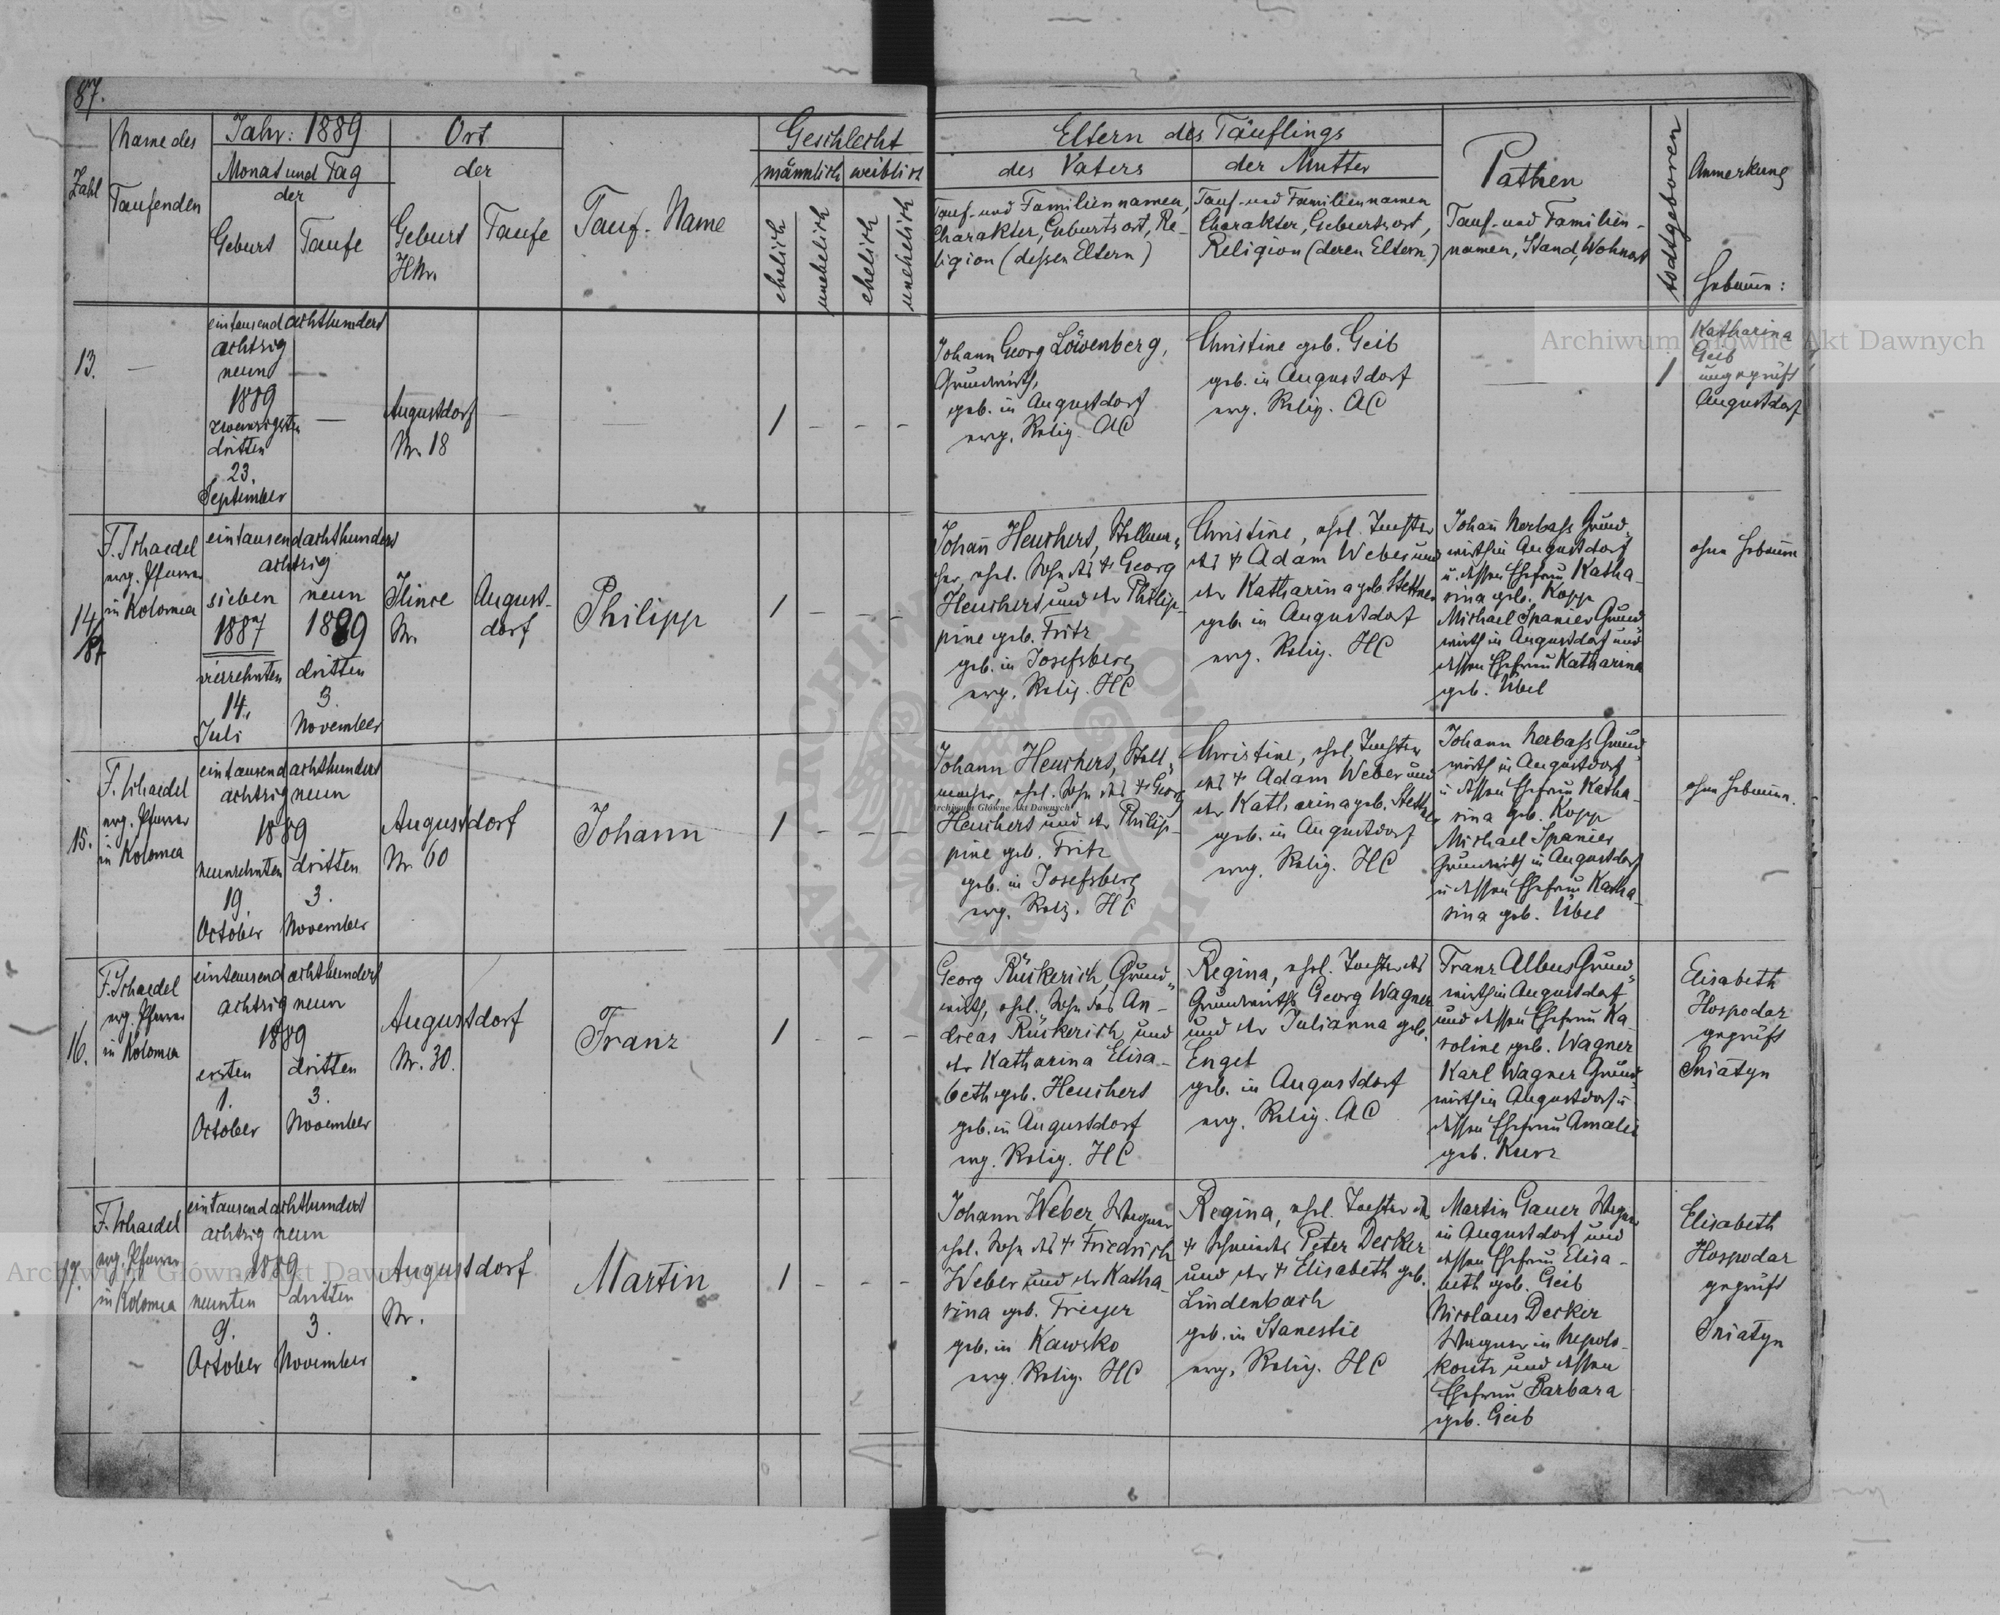 87.
Zahl
Name des
Taufenden
Jahr: 1889
Monat und Tag
der
Geburt
Taufe
Ort
der
Geburt
HNr.
Taufe
Tauf-Name
Geschlecht
männlich
weiblich
ehelich
unehelich
ehelich
unehelich
Eltern des Täuflings
des Vaters
Tauf- und Familiennamen,
Charakter, Geburtsort, Re-
ligion (dessen Eltern)
der Mutter
Tauf- und Familiennamen
Charakter, Geburtsort,
Religion (deren Eltern)
Pathen
Tauf- und Familien-
namen, Stand, Wohnort
todtgeboren
Anmerkung
Hebamme:
13.
—
eintausendachthundert
achtzig
neun
1889
zwanzigsten
dritten
23.
September
—
Augustdorf
Nr. 18
—
—
1
–
–
–
Johann Georg Löwenberg,
Grundwirth,
geb. in Augustdorf
evg. Relig. AC
Christine geb. Geib
geb. in Augustdorf
evg. Relig. AC
—
1
Katharina
Geib
ungeprüft
Augustdorf
14.
F. Schaedel
evg. Pfarrer
in Kolomea
eintausendachthundert
achtzig
sieben
1887
vierzehnten
14.
Juli
neun
1889
dritten
3.
November
Ilince
Nr.
August-
dorf
Philipp
1
–
–
–
Johann Heuchert, Stellma-
cher, ehel. Sohn des † Georg
Heuchert und der Philip-
pine geb. Fritz
geb. in Josefsberg
evg. Relig. HC
Christine, ehel. Tochter
des † Adam Weber und
der Katharina geb. Stettner
geb. in Augustdorf
evg. Relig. HC
Johann Nerbass Grund-
wirth in Augustdorf
u. dessen Ehefrau Katha-
rina geb. Kopp
Michael Spanier Grund
wirth in Augustdorf und
dessen Ehefrau Katharina
geb. Übel
ohne Hebamme
15.
F. Schaedel
evg. Pfarrer
in Kolomea
eintausendachthundert
achtzig neun
1889
neunzehnten
19.
October
dritten
3.
November
Augustdorf
Nr. 60
Johann
1
–
–
–
Johann Heuchert, Stell-
macher, ehel. Sohn des † Georg
Heuchert und der Philip-
pine geb. Fritz
geb. in Josefsberg
evg. Relig. HC
Christine, ehel. Tochter
des † Adam Weber und
der Katharina geb. Stettner
geb. in Augustdorf
evg. Relig. HC
Johann Nerbass Grund-
wirth in Augustdorf
u. dessen Ehefrau Katha-
rina geb. Kopp
Michael Spanier
Grundwirth in Augustdorf
u. dessen Ehefrau Katha-
rina geb. Übel
ohne Hebamme.
16.
F. Schaedel
evg. Pfarrer
in Kolomea
eintausendachthundert
achtzig neun
1889
ersten
1.
October
dritten
3.
November
Augustdorf
Nr. 30.
Franz
1
–
–
–
Georg Rückerich, Grund-
wirth, ehel. Sohn des An-
dreas Rückerich und
der Katharina Elisa-
beth geb. Heuchert
geb. in Augustdorf
evg. Relig. HC
Regina, ehel. Tochter des
Grundwirths Georg Wagner
und der Julianna geb.
Engel
geb. in Augustdorf
evg. Relig. AC
Franz Albus Grund-
wirth in Augustdorf
und dessen Ehefrau Ka-
roline geb. Wagner
Karl Wagner Grund-
wirth in Augustdorf u
dessen Ehefrau Amalie
geb. Kurz
Elisabeth
Hospodar
geprüft
Sniatyn
17.
F. Schaedel
evg. Pfarrer
in Kolomea
eintausendachthundert
achtzig neun
1889
neunten
9.
October
dritten
3.
November
Augustdorf
Nr.
Martin
1
–
–
–
Johann Weber Wagner
ehel. Sohn des † Friedrich
Weber und der Katha-
rina geb. Freyer
geb. in Kawsko
evg. Relig. HC
Regina, ehel. Tochter des
† Schmieds Peter Decker
und der † Elisabeth geb.
Lindenbach
geb. in Stanestie
evg. Relig. HC
Martin Gauer Wagner
in Augustdorf und
dessen Ehefrau Elisa-
beth geb. Geib
Nicolaus Decker
Wagner in Nepolo-
koutz und dessen
Ehefrau Barbara
geb. Geib
Elisabeth
Hospodar
geprüft
Sniatyn
Archiwum Główne Akt Dawnych
Archiwum Główne Akt Dawnych
Archiwum Główne Akt Dawnych